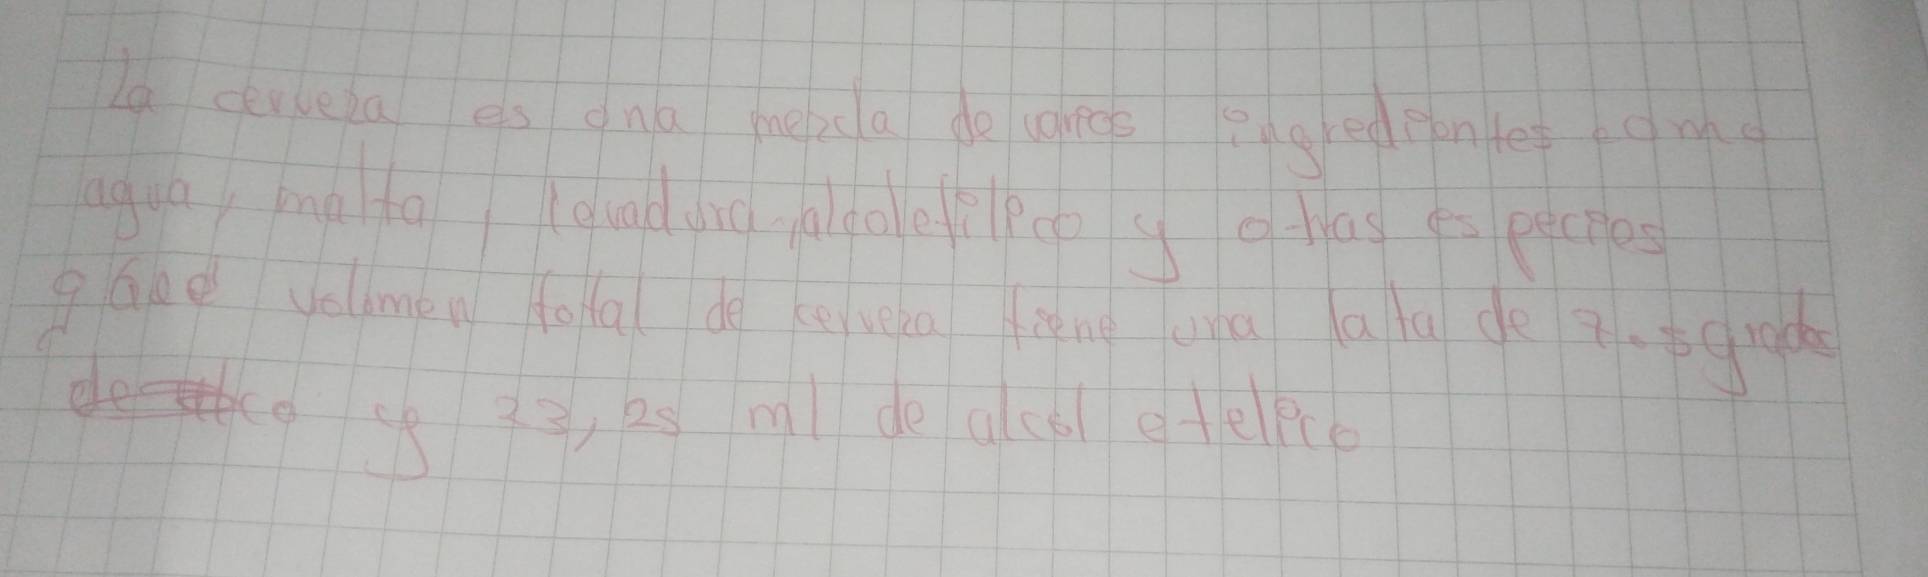 la cerveza es una mezcla de varios ingredientes como
agua, malta, levadura, alcoletilico y otras especies
qué volumen total de cerveza tiene una lata de 7.5 grados
y 23,25 ml de alcol etelico